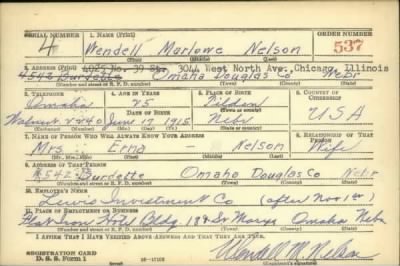 SERIAL NUMBER 1. NAME (Print) ORDER NUMBER
4 Wendell Marlowe Nelson 537
2. ADDRESS (Print) 4025 No. 39 Str. 3044 West North Ave., Chicago, Illinois
4542 Burdette Omaha Douglas Co Nebr
3. TELEPHONE 4. AGE IN YEARS 5. PLACE OF BIRTH 6. COUNTRY OF CITIZENSHIP
Omaha 25 Tilden
DATE OF BIRTH
Walnut 2240 June 17 1915 Nebr USA
(Exchange) (Number) (Mo.) (Day) (Yr.) (State or country)
7. NAME OF PERSON WHO WILL ALWAYS KNOW YOUR ADDRESS 8. RELATIONSHIP OF THAT PERSON
Mrs. Erna — Nelson Wife
9. ADDRESS OF THAT PERSON
4542 Burdette Omaha Douglas Co Nebr
(Number and street or R. F. D. number) (Town) (County) (State)
10. EMPLOYER'S NAME
Lewis Investment Co (after Nov 1st)
11. PLACE OF EMPLOYMENT OR BUSINESS
Flat Iron Hotel Bldg 18 & St Marys Omaha Nebr
(Number and street or R. F. D. number) (Town) (County) (State)
I AFFIRM THAT I HAVE VERIFIED ABOVE ANSWERS AND THAT THEY ARE TRUE.
REGISTRATION CARD
D. S. S. Form 1 16-17105 Wendell M. Nelson